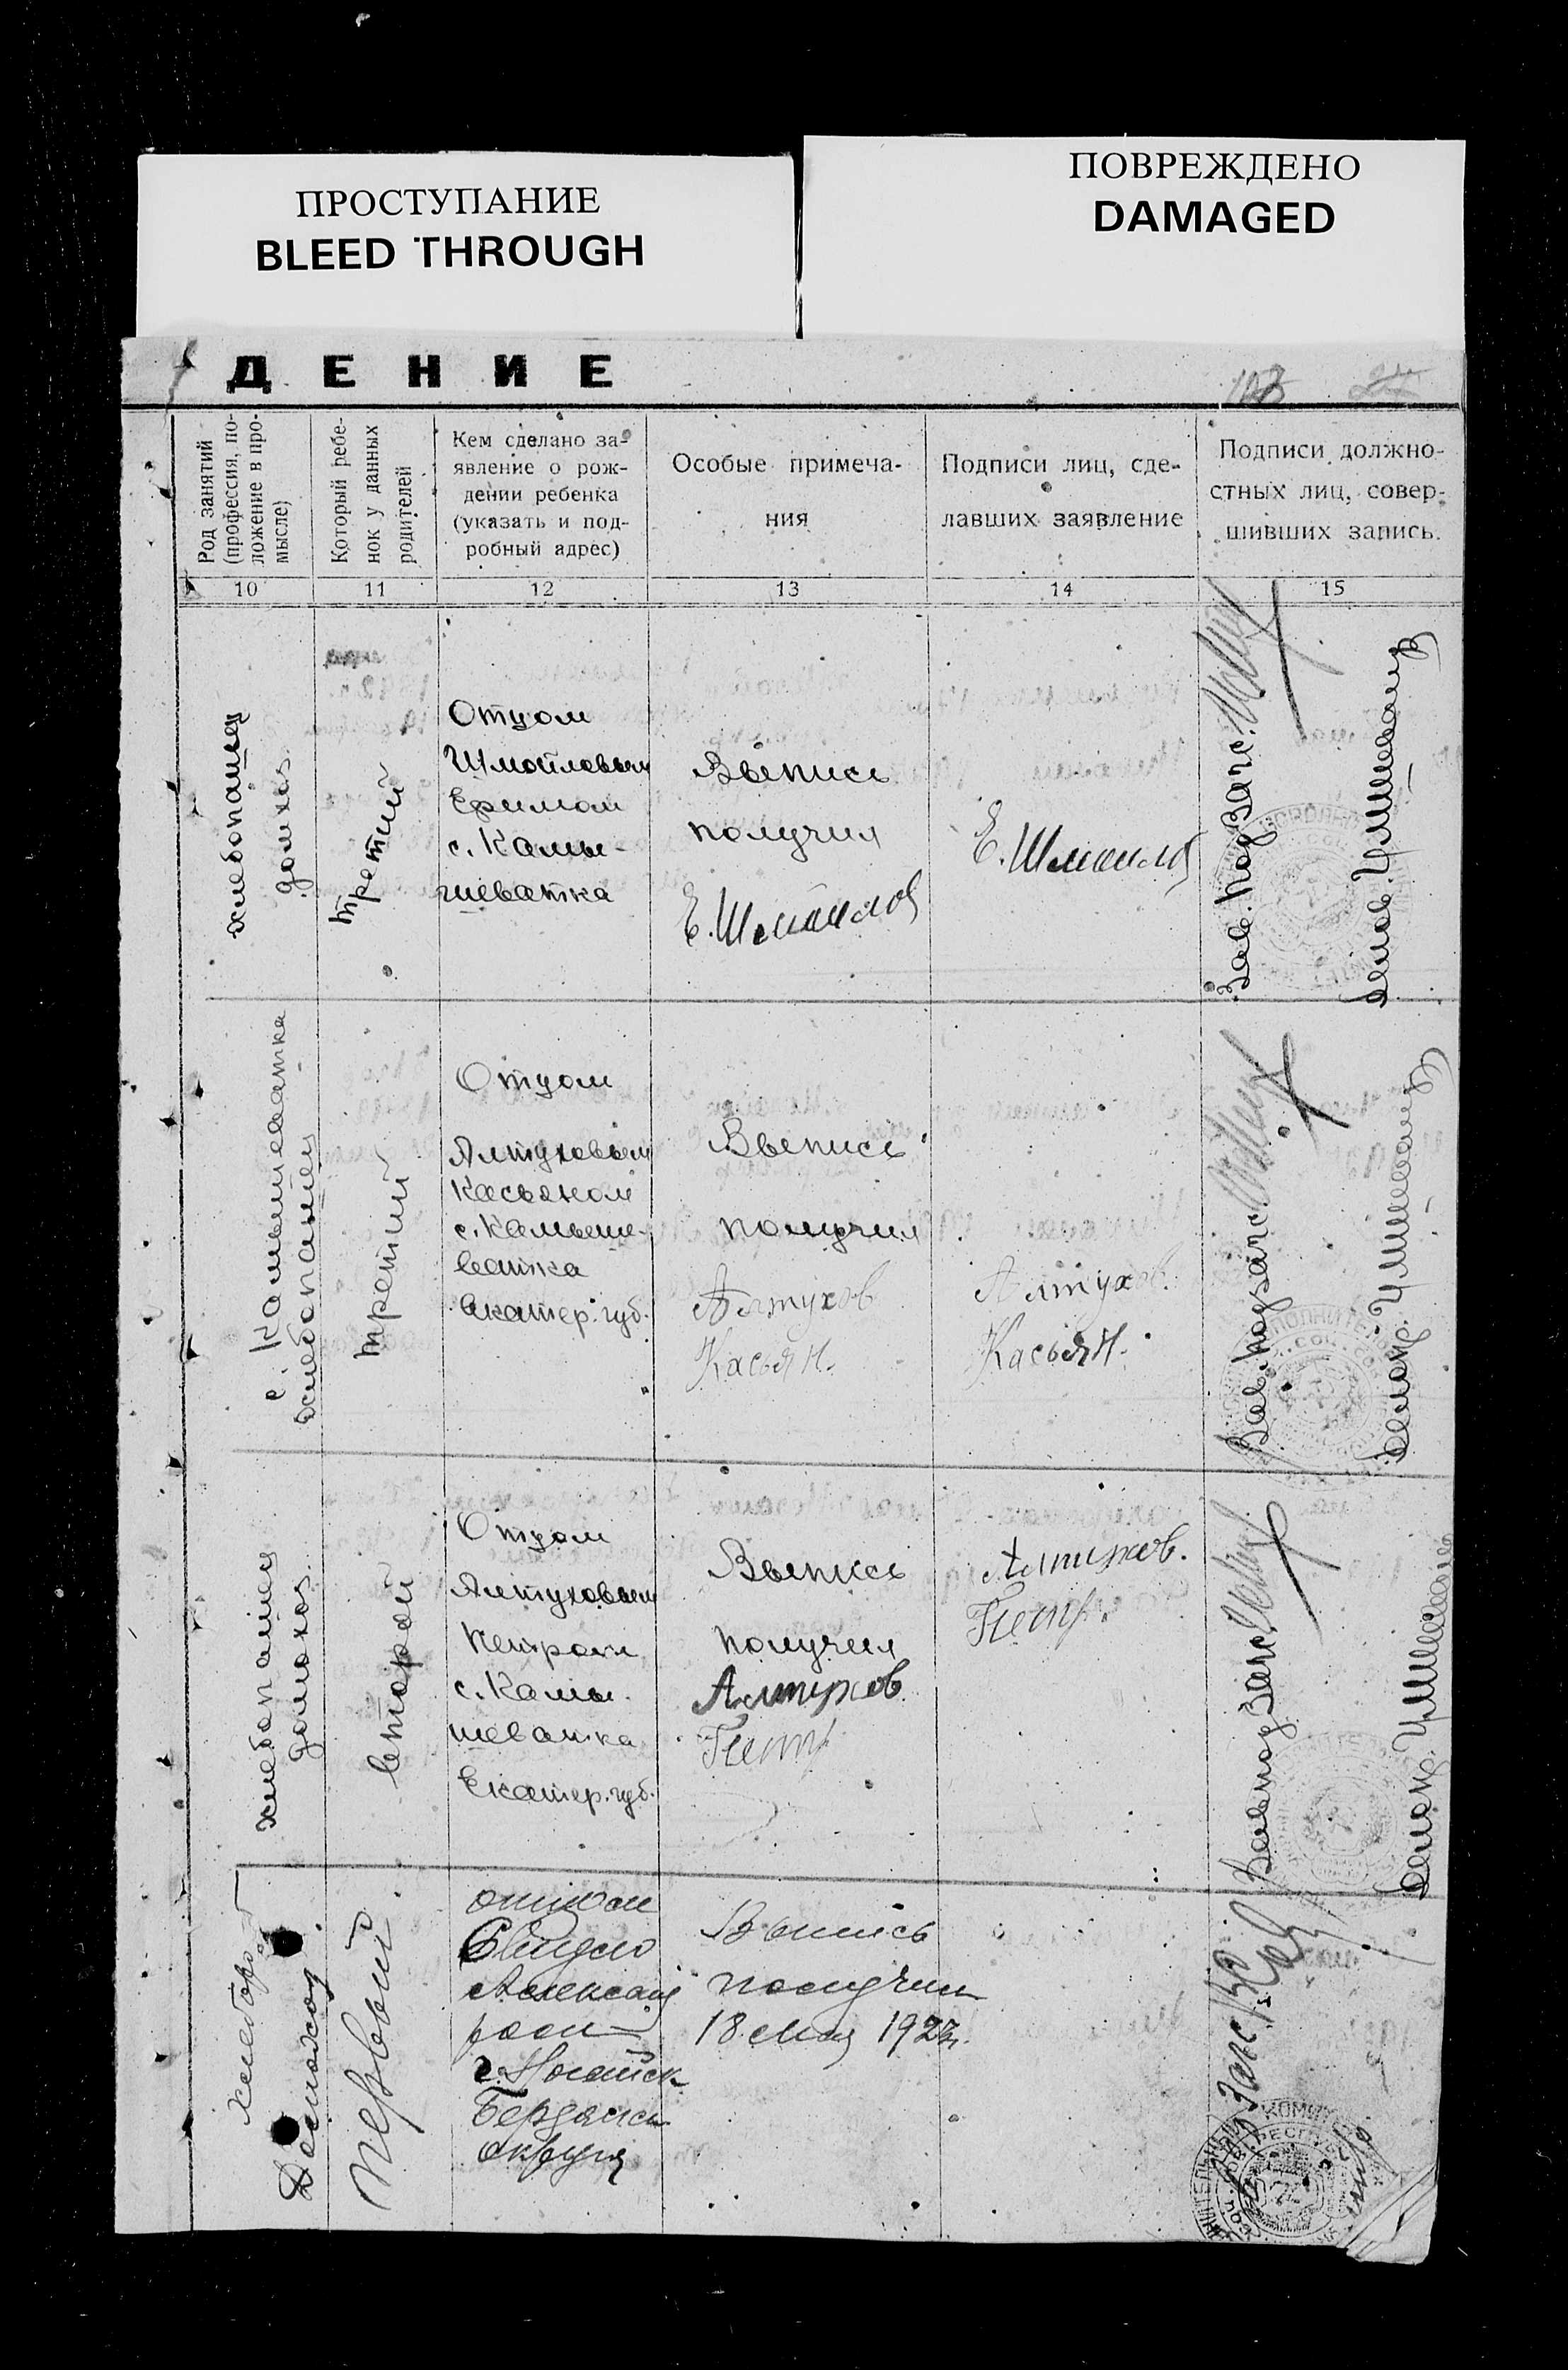 ПРОСТУПАНИЕ
BLEED THROUGH
ПОВРЕЖДЕНО
DAMAGED
ДЕНИЕ
Род занятий
(профессия, по-
ложение в про-
мысле)
Который ребе-
нок у данных
родителей
Кем сделано за-
явление о рож-
дении ребенка
(указать и под-
робный адрес)
Особые примеча-
ния
Подписи лиц, сде-
лавших заявление
Подписи должно-
стных лиц, совер-
шивших запись.
10
11
12
13
14
15
хлебопашец
домхоз.
третий
Отцом
Шмойловым
Ефимом
с. Камы-
шеватка
Выпись
получил
Е. Шмойлов
Е. Шмойлов
Зав. под Загс.
с. Камышеватка
хлебопашец
третий
Отцом
Алтуховым
Касьяном
с. Камыше-
ватка
Екатер. губ.
Выпись
получил
Алтухов
Касьян.
Алтухов.
Касьян.
Зав. подзагс.
хлебопашец
домохоз.
второй
Отцом
Алтуховым
Петром
с. Камы-
шеватка
Екатер. губ.
Выпись
получил
Алтухов
Петр
Алтухов.
Петр.
Завподзагс
хлебороб
Домохоз.
Первый
отцом
Александ
ром
г. Ногайск
Бердянск
округа
Выпись
получил
18 мая 1923г.